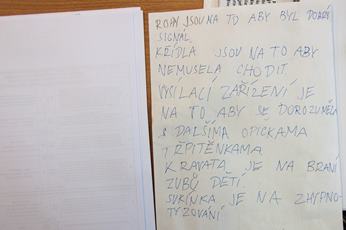 ROHY JSOU NA TO ABY BYL DOBRÝ
SIGNÁL
KŘÍDLA JSOU NA TO ABY
NEMUSELA CHODIT
VYSÍLACÍ ZAŘÍZENÍ JE
NA TO ABY SE DOROZUMĚLA
S DALŠÍMA OPIČKAMA
TŘPITĚNKAMA
KRAVATA JE NA BRANÍ
ZUBŮ DĚTÍ
SUKÍNKA JE NA ZHYPNO-
TYZOVÁNÍ